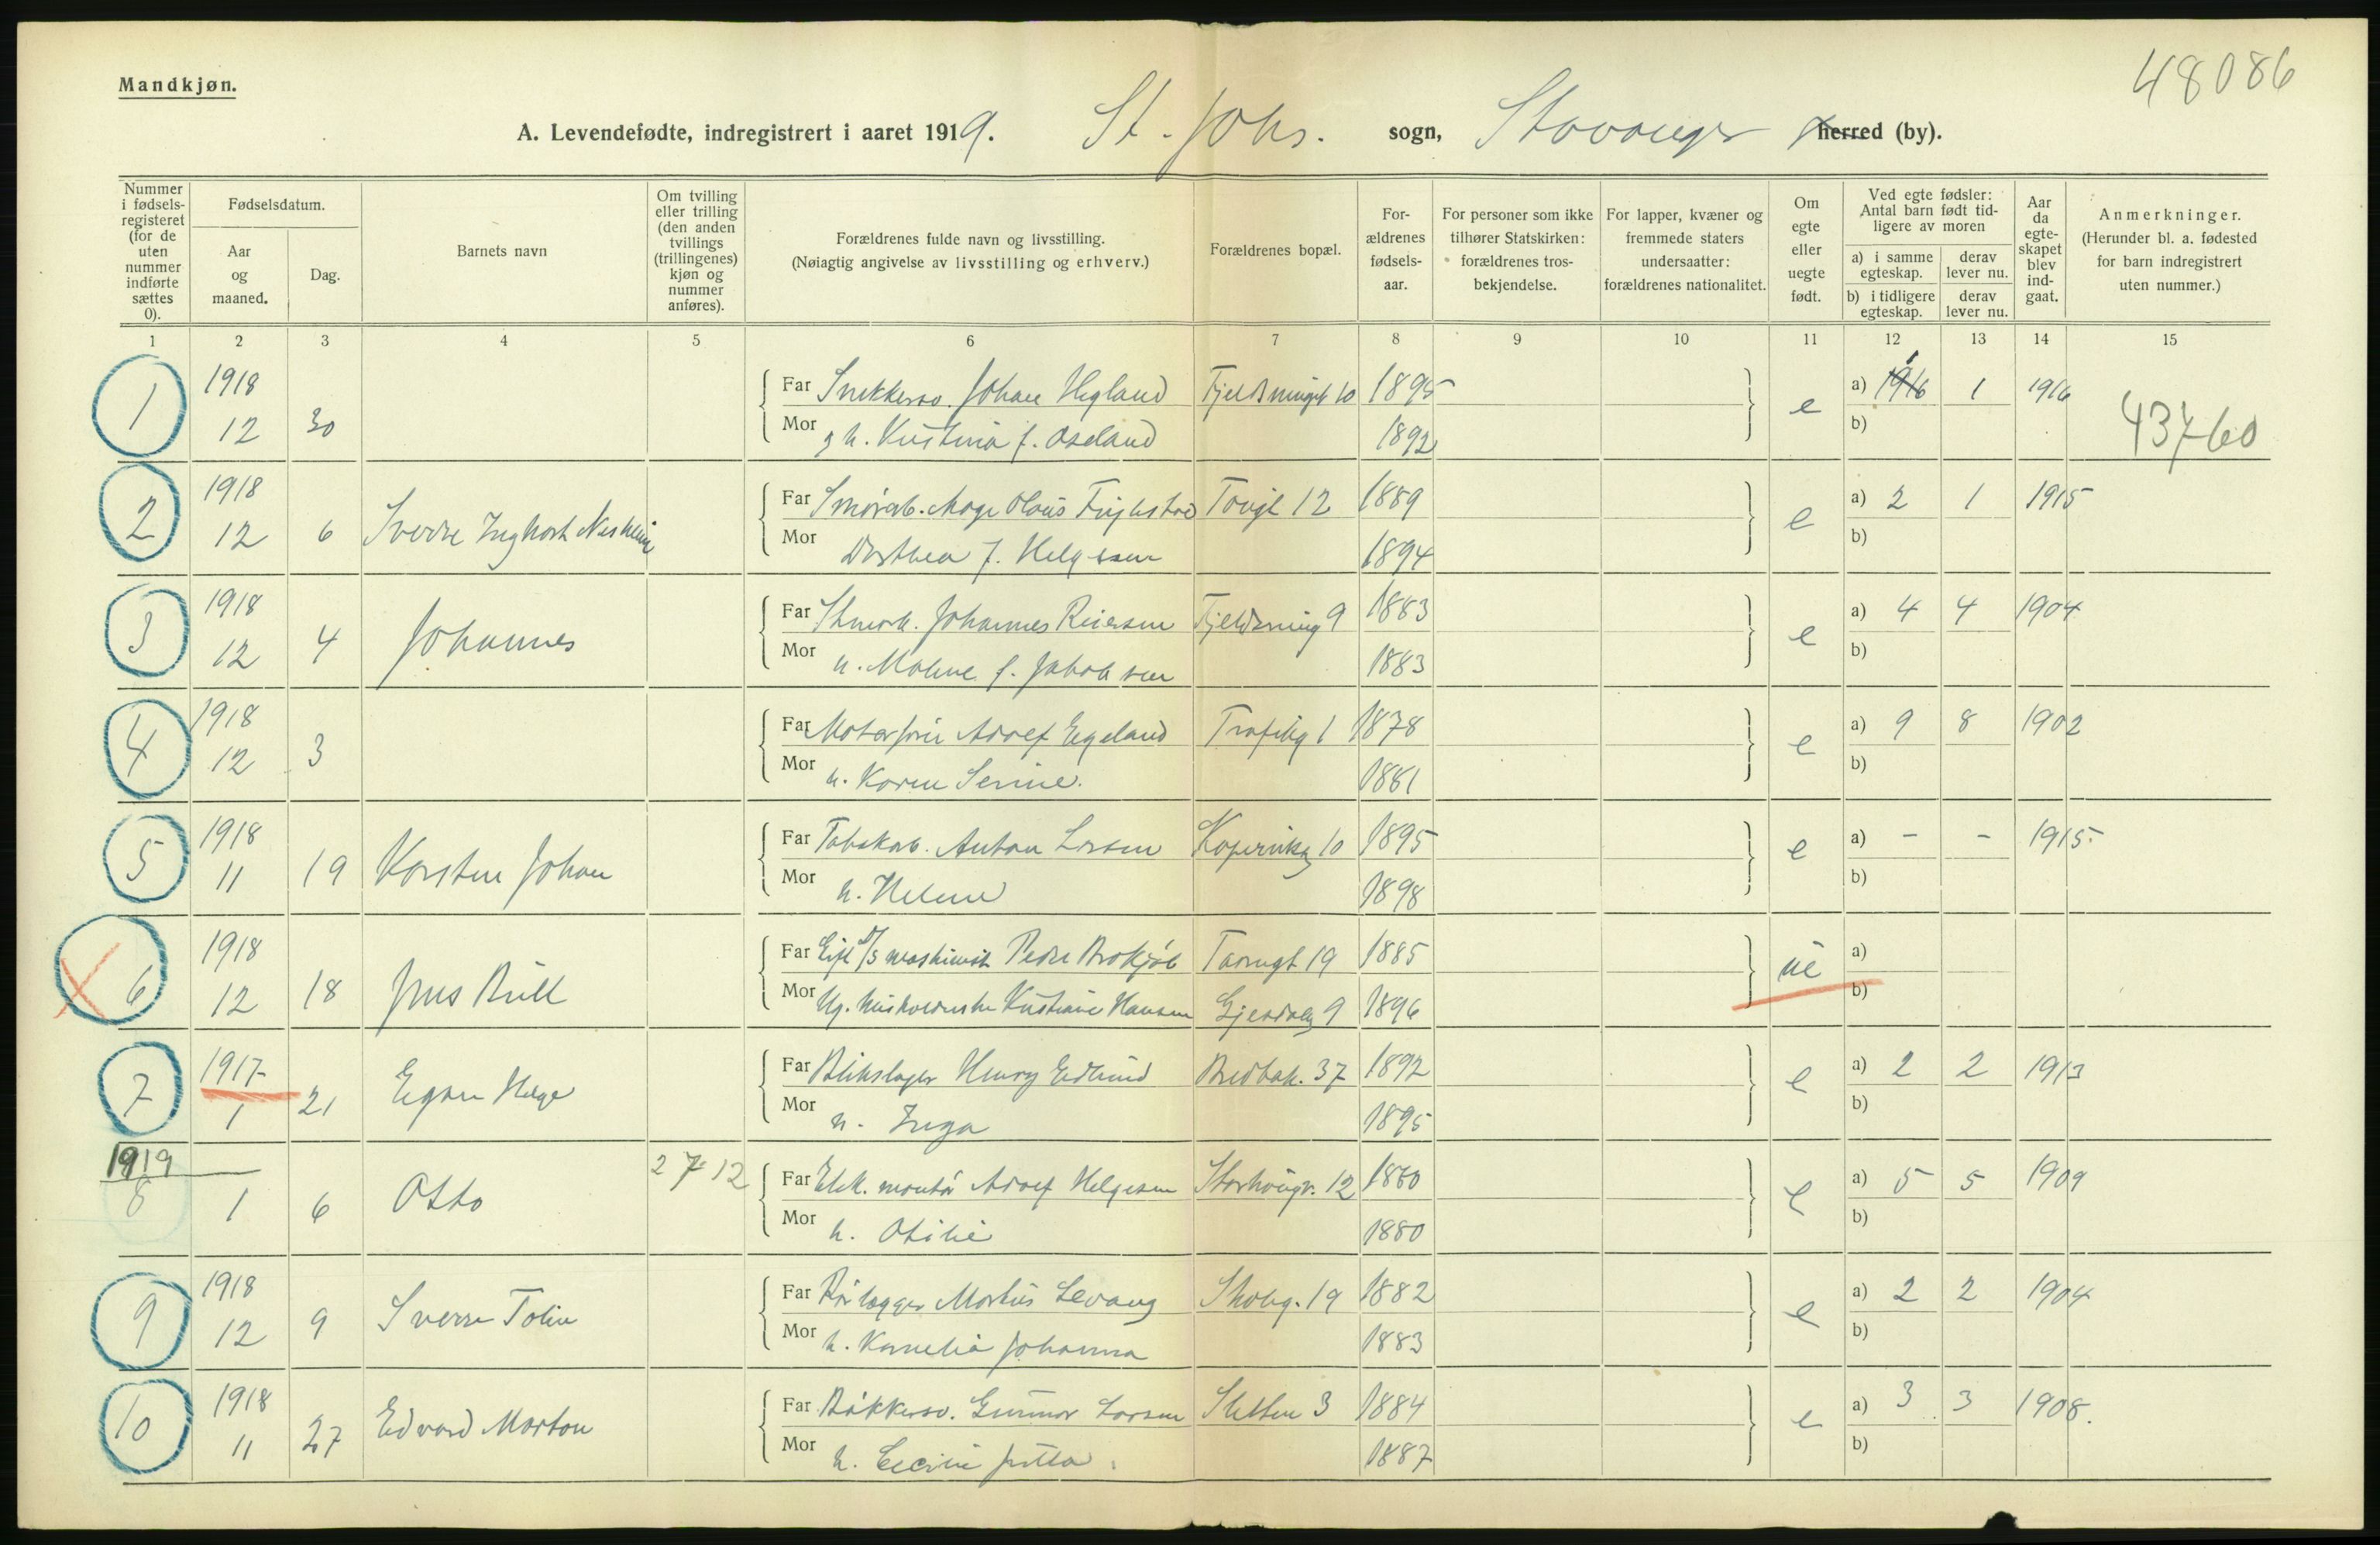 48086
Mandkjøn.
A. Levendefødte, indregistrert i aaret 1919. St. Johs. sogn, Stavanger herred (by).
Nummer i fødsels-registeret (for de uten nummer indførte sættes 0).
Fødselsdatum.
Aar og maaned.
Dag.
Barnets navn
Om tvilling eller trilling (den anden tvillings (trillingenes) kjøn og nummer anføres).
Forældrenes fulde navn og livsstilling.
(Nøiagtig angivelse av livsstilling og erhverv.)
Forældrenes bopæl.
For-ældrenes fødsels-aar.
For personer som ikke tilhører Statskirken: forældrenes tros-bekjendelse.
For lapper, kvæner og fremmede staters undersaatter: forældrenes nationalitet.
Om egte eller uegte født.
Ved egte fødsler: Antal barn født tid-ligere av moren
a) i samme egteskap.
derav lever nu.
b) i tidligere egteskap.
derav lever nu.
Aar da egte-skapet blev ind-gaat.
Anmerkninger.
(Herunder bl. a. fødested for barn indregistrert uten nummer.)
1 2 3 4 5 6 7 8 9 10 11 12 13 14 15
1 1918 Far Snekkersv. Johan Høgland 10 1895 e a) 1 1 1916
12 30 Mor h. Kristina f. Aseland 1892 b) 43760
2 1918 Far Olaus 12 1889 e a) 2 1 1915
12 6 Sverre Mor Dorthea f. Helgesen 1894 b)
3 1918 Far Johannes Reiersen 9 1883 e a) 4 4 1904
12 4 Johannes Mor h. Malene f. Jakobsen 1883 b)
4 1918 Far Adolf Egeland 1 1878 e a) 9 8 1902
12 3 Mor h. Karen Serine. 1881 b)
5 1918 Far Tobakarb. Anton Larsen Kopervikg 10 1895 e a) - - 1915.
11 19 Karsten Johan Mor h. Helene 1898 b)
6 1918 Far maskinist Peder 19 1885 ue a)
12 18 Jens Bull Mor Ug. Kristiane Hansen Gjesdalg 9 1896 b)
7 1917 Far Blikslager Henry Edlund Bredbak. 37 1892 e a) 2 2 1913
1 21 Egon Helge Mor h. Inga 1895 b)
1919 27 12 Far Elek. montør Adolf Helgesen 12 1880 e a) 5 5 1909
8 1 6 Otto Mor h. Otilie 1880 b)
9 1918 Far Rørlægger Levang 19 1882 e a) 2 2 1904
12 9 Sverre Mor h. Kornelia Johanna 1883 b)
10 1918 Far Bøkkersv. Gunnar Larsen Sletten 3 1884 e a) 3 3 1908.
11 27 Edvard Marton Mor h. Cecilie Jutta. 1887 b)